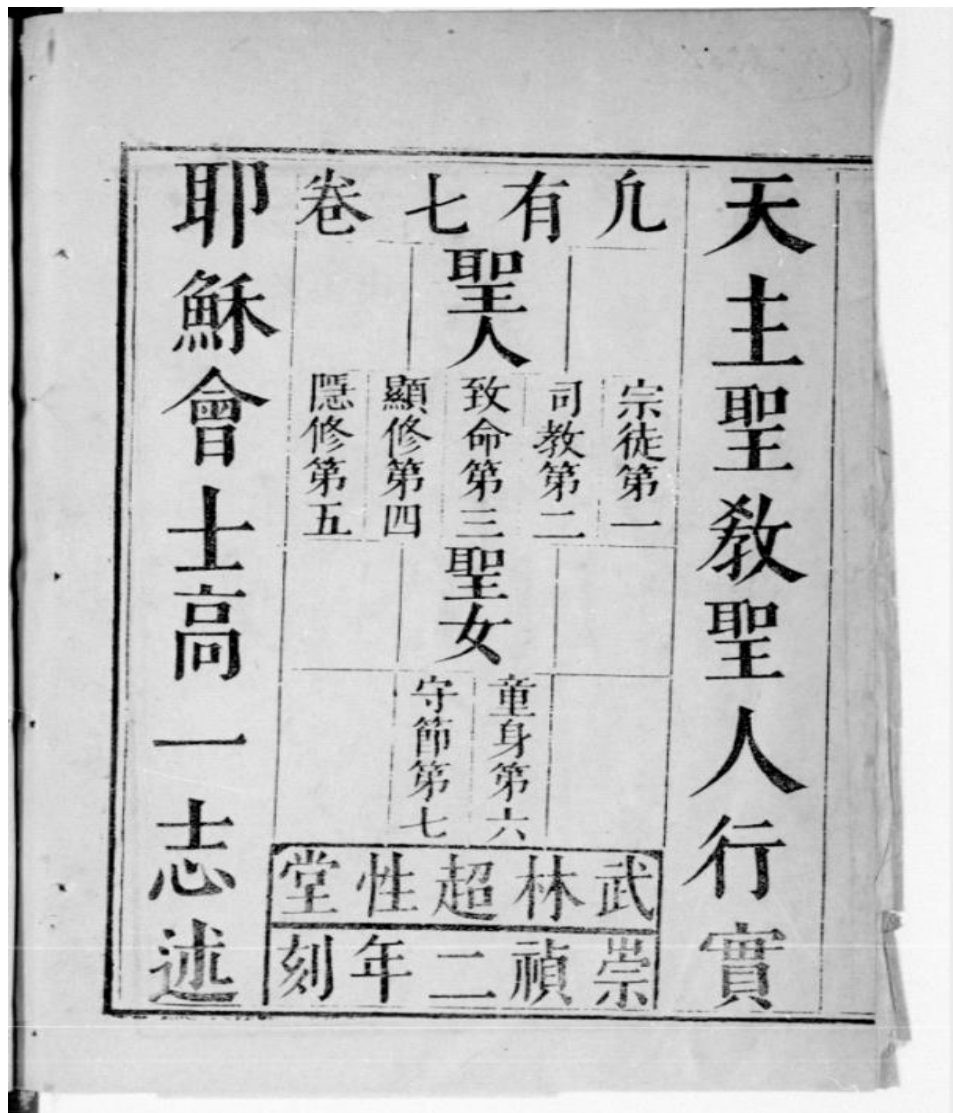 天主聖教聖人行實
凢有七卷
聖人
宗徒第一
司教第二
致命第三
顯修第四
隱修第五
聖女
童身第六
守節第七
武林超性堂
崇禎二年刻
耶穌會士高一志述